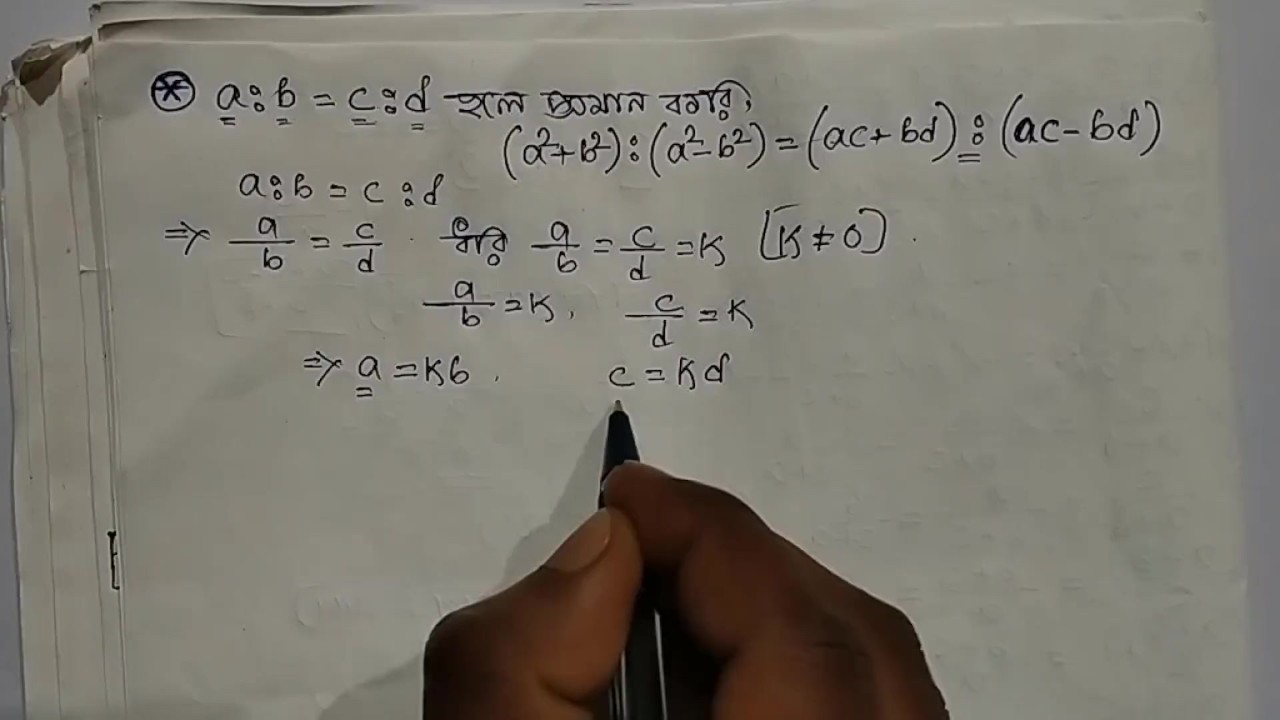 * a : b = c : d হলে প্রমান করি,
(a²+b²) : (a²-b²) = (ac+bd) : (ac-bd)
a : b = c : d
⇒ a/b = c/d . ধরি a/b = c/d = K [K ≠ 0] .
a/b = K, c/d = K
⇒ a = Kb . c = Kd